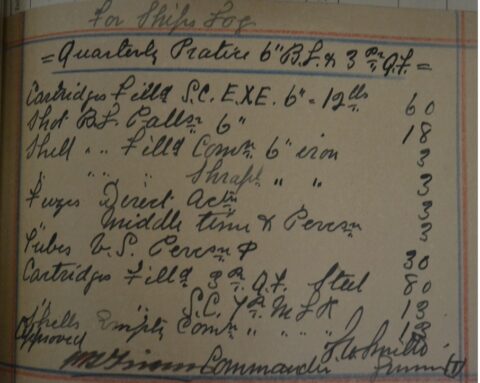 For Ships Log
= Quarterly Pratice 6" B.L. & 3 Pr Q.F. =
Cartridges Filld S.C. E.X.E. 6" = 12 lbs 60
Shot B.L. Pallr 6" 18
Shell " " Filld Commn 6" iron 3
" " " Shrapl " " 3
Fuzes Direct Actn 3
Middle time & Percsn 3
Tubes V.S. Percsn 30
Cartridges Filld 3 Pr Q.F. Steel 80
" " S.C. 7 Pr M L R 13
Shells Empty Commn " " " "
Approved
Commander